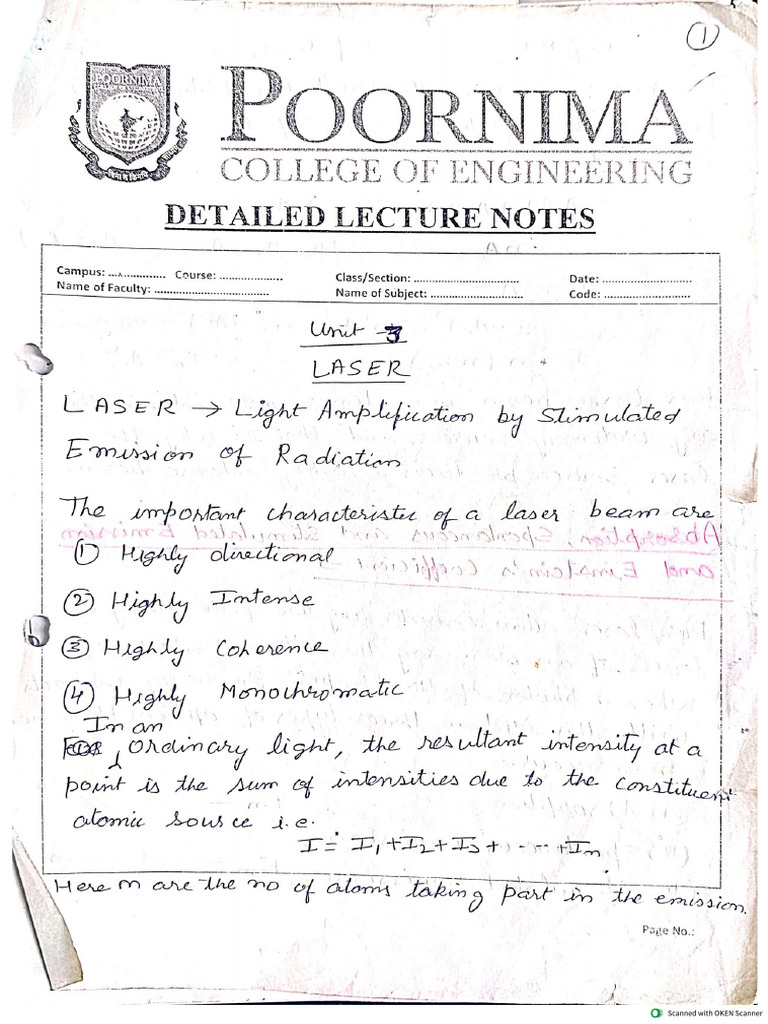 1
POORNIMA
POORNIMA
COLLEGE OF ENGINEERING
DETAILED LECTURE NOTES
Campus: .................. Course: ....................
Class/Section: ..............................
Date: .........................
Name of Faculty: ................................
Name of Subject: ..........................
Code: ........................
Unit - 3
LASER
LASER → Light Amplification by Stimulated
Emission of Radiation
The important characteristic of a laser beam are
Absorption, Spontaneous and Stimulated Emission
① Highly directional
and Einstein's Coefficient
② Highly Intense
③ Highly Coherence
④ Highly Monochromatic
In an
ordinary light, the resultant intensity at a
point is the sum of intensities due to the constituent
atomic source i.e.
I = I1 + I2 + I3 + ..... + In
Here n are the no of atoms taking part in the emission.
Page No.:
Scanned with OKEN Scanner